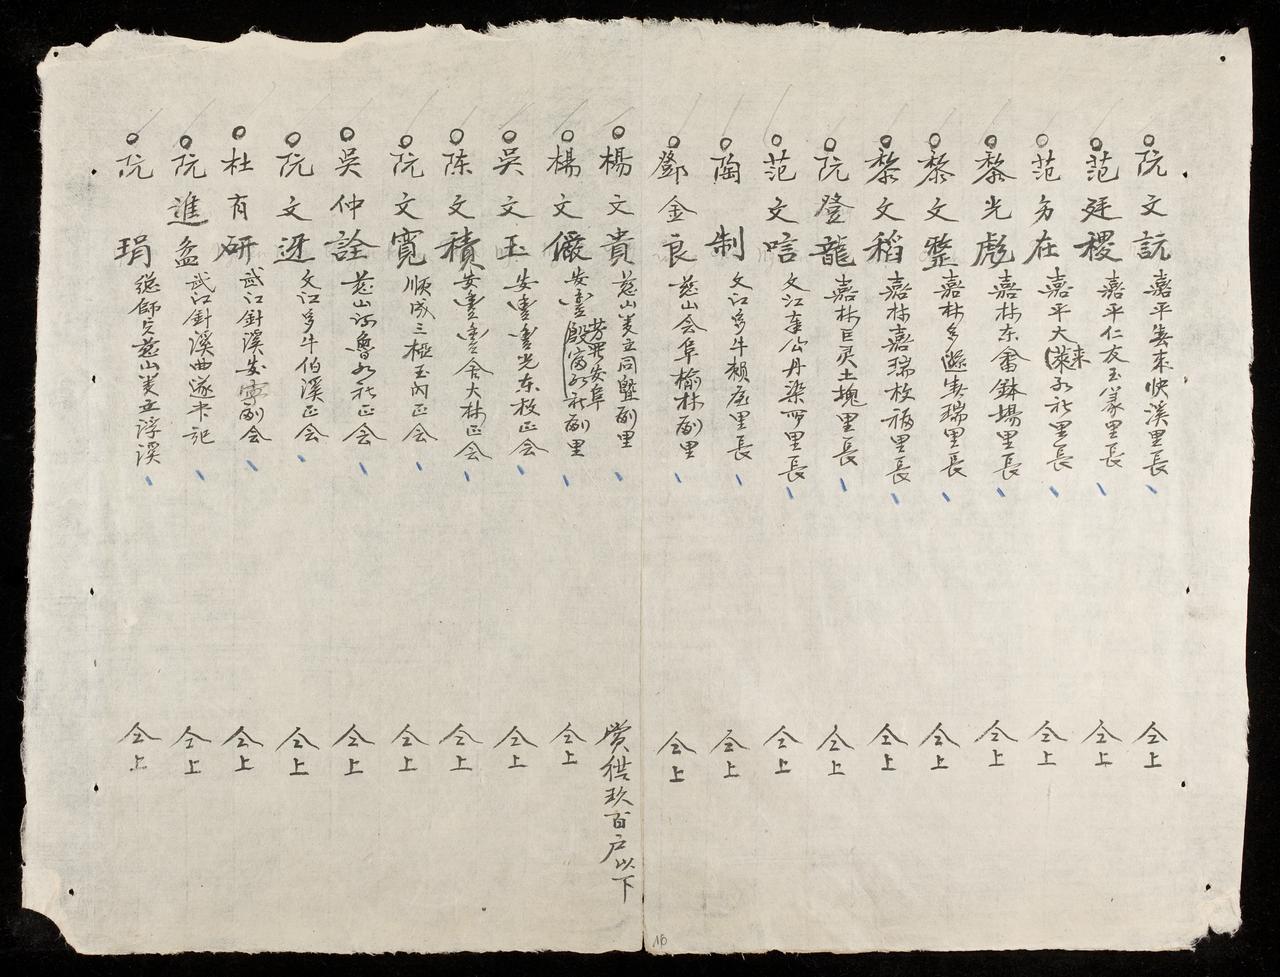 阮文訦 嘉平春來快溪里長 仝上
范廷稷 嘉平仁友玉篆里長 仝上
范多在 嘉平大萊永社里長 來 仝上
黎光彪 嘉林东畬鉢場里長 仝上
黎文整 嘉林多遜春瑞里長 仝上
黎文稻 嘉林嘉瑞枚福里長 仝上
阮登龍 嘉林巨灵土塊里長 仝上
范文唁 文江奉公丹染里長 仝上
陶制 文江多牛賴庭里長 仝上
鄧金良 慈山会阜榆林副里 仝上
楊文貴 慈山芙立同壂副里 赏供玖百戶以下
楊文儼 安豊殷富永社副里 芳安阜 仝上
吳文玉 安豊豊光东枚正会 仝上
陈文積 安豊豊舍大林正会 仝上
阮文寬 順成三極玉內正会 仝上
吳仲詮 慈山河魯永社正会 仝上
阮文迓 文江多牛伯溪正会 仝上
杜有研 武江針溪安寧副会 仝上
阮進盆 武江針溪曲遂书記 仝上
阮琄 總師完慈山芙立浮溪 仝上
16